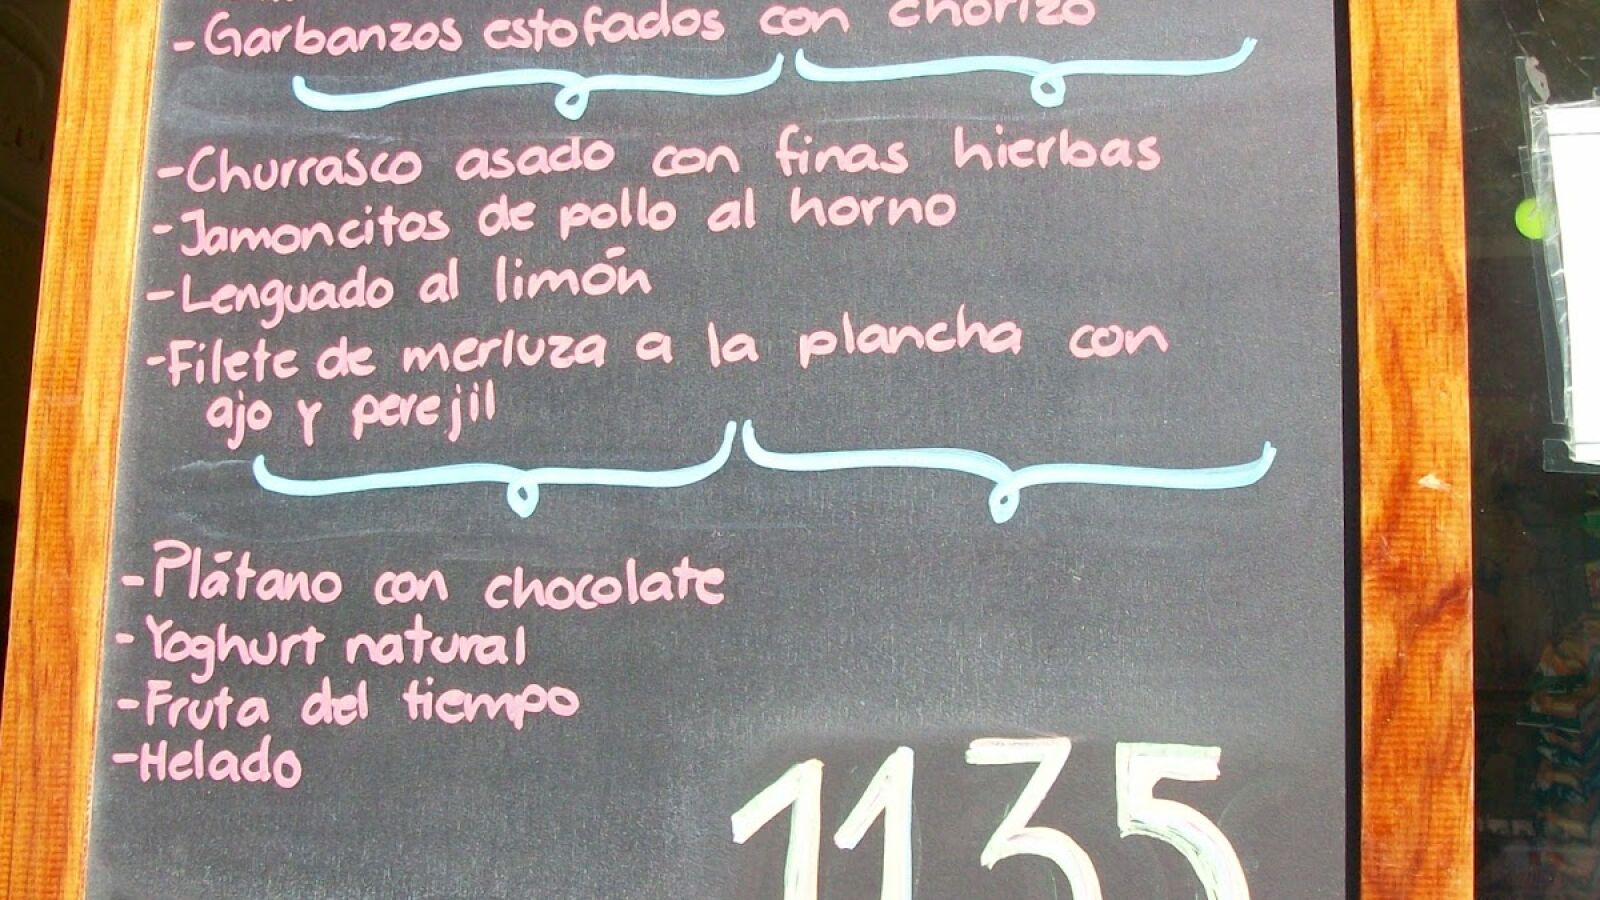 -Garbanzos estofados con chorizo
-Churrasco asado con finas hierbas
-Jamoncitos de pollo al horno
-Lenguado al limón
-Filete de merluza a la plancha con
ajo y perejil
-Plátano con chocolate
-Yoghurt natural
-Fruta del tiempo
-Helado
1135